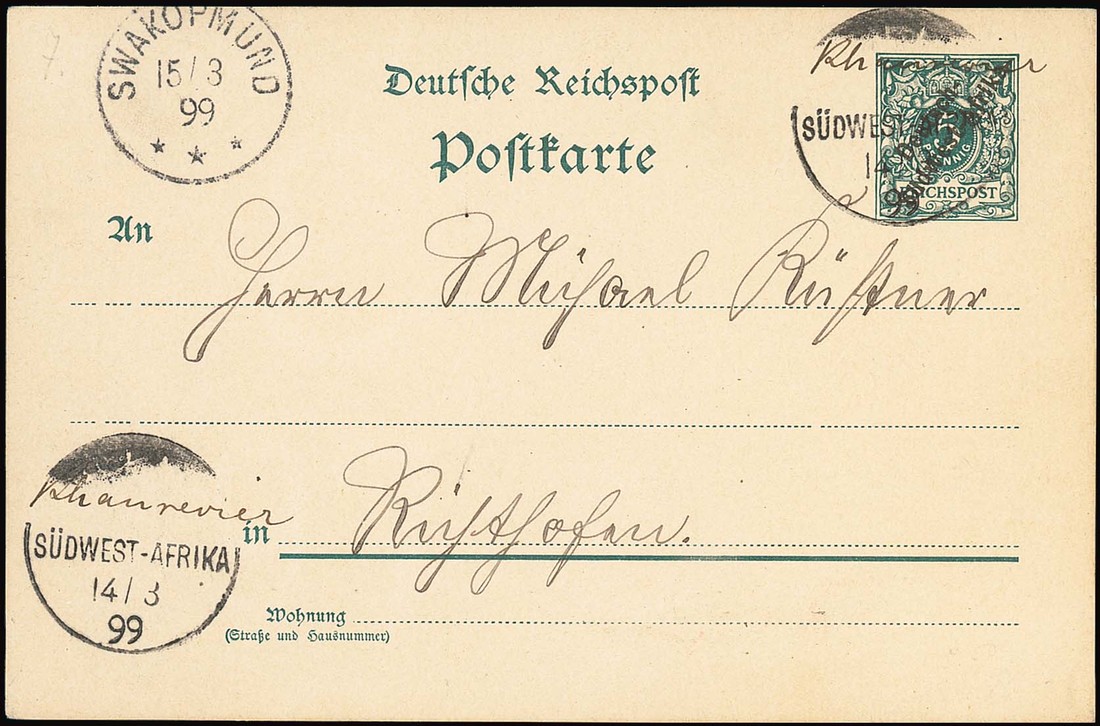 7.
SWAKOPMUND
15/3
99
Deutsche Reichspost
Postkarte
SÜDWEST
14
99
5
PFENNIG
REICHSPOST
An
Herrn Michael
Khanrevier
SÜDWEST-AFRIKA
14/3
99
in
Richthofen.
Wohnung
(Straße und Hausnummer)